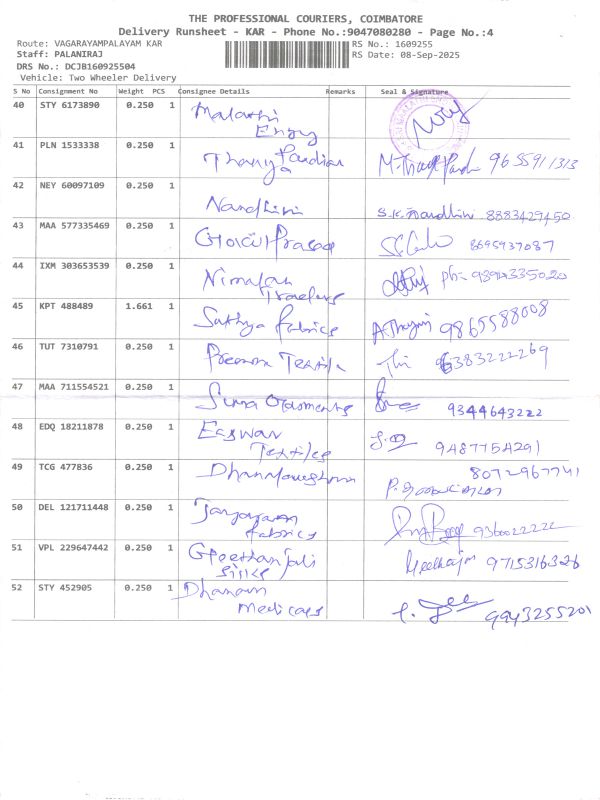 THE PROFESSIONAL COURIERS, COIMBATORE
Delivery Runsheet - KAR - Phone No.:9047080280 - Page No.:4
Route: VAGARAYAMPALAYAM KAR
RS No.: 1609255
Staff: PALANIRAJ
RS Date: 08-Sep-2025
DRS No.: DCJB160925504
Vehicle: Two Wheeler Delivery
S No Consignment No Weight PCS Consignee Details Remarks Seal & Signature
40 STY 6173890 0.250 1 Malathi
Engg
41 PLN 1533338 0.250 1 Thanga Pandian 9655911313
42 NEY 60097109 0.250 1 Nandhini S.K. Nandhini 8883429450
43 MAA 577335469 0.250 1 Gokul Prasad 8695937087
44 IXM 303653539 0.250 1
Traders ph:-
45 KPT 488489 1.661 1 Sathya Fabrics 9865588008
46 TUT 7310791 0.250 1 Textile 6383222269
47 MAA 711554521 0.250 1 9344643222
48 EDQ 18211878 0.250 1 Easwar
Textiles 9487754291
49 TCG 477836 0.250 1 8072967741
50 DEL 121711448 0.250 1
Fabrics 9360022222
51 VPL 229647442 0.250 1 Geethanjali
Silks 9715316326
52 STY 452905 0.250 1 Dhanam
Medicals 9943255201